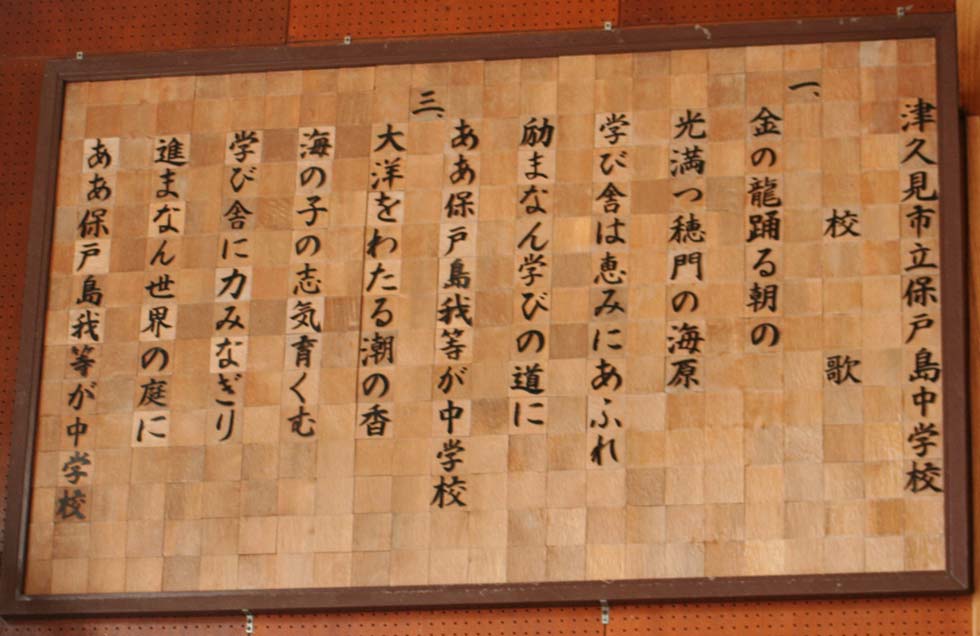 津久見市立保戸島中学校
校歌
一、
金の龍踊る朝の
光満つ穂門の海原
学び舎は恵みにあふれ
励まなん学びの道に
ああ保戸島我等が中学校
三、
大洋をわたる潮の香
海の子の志気育くむ
学び舎に力みなぎり
進まなん世界の庭に
ああ保戸島我等が中学校